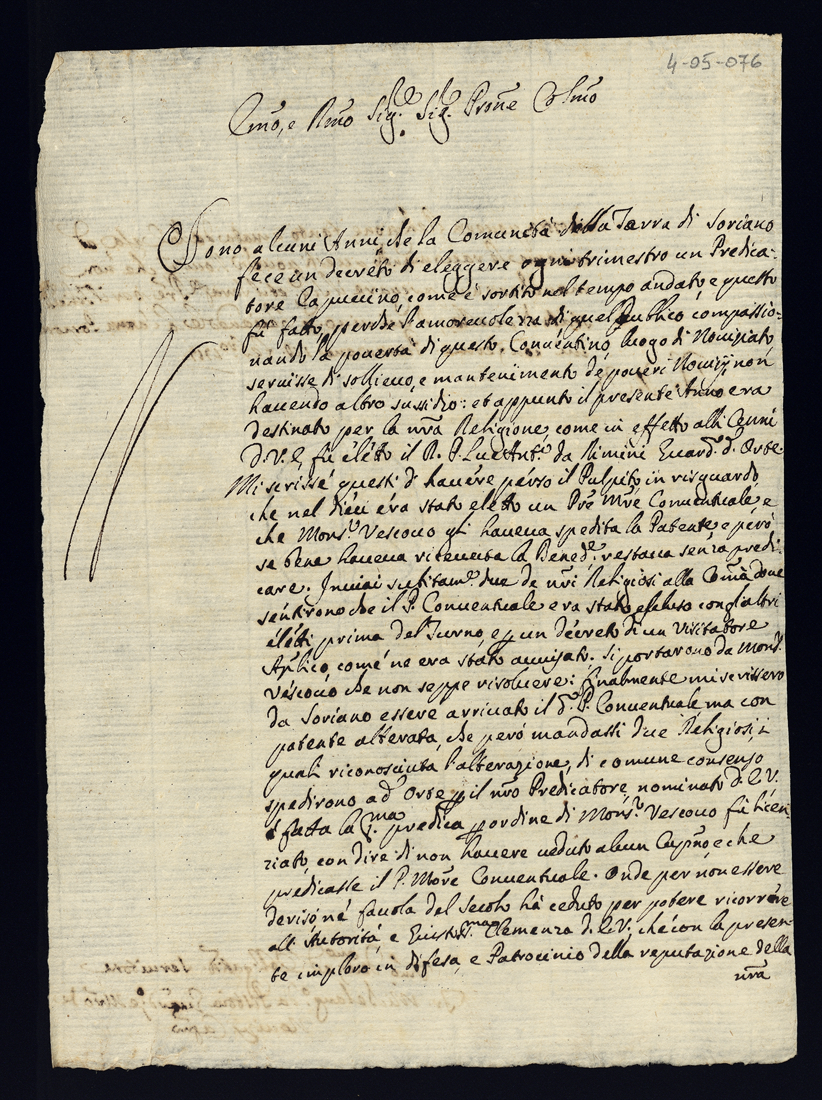 4-05-076
Emo, e Rmo Sig.re Sig. Prone Colmo
Sono alcuni Anni, che la Comunità della Terra di Soriano
fece un decreto di eleggere ogni trimestro un Predica-
tore Capuccino, come è sortito nel tempo andato, e questo
fù fatto, perche l'amorevolezza di quel Publico compassio-
nando la povertà di questo Conventino luogo di Noviziato
servisse di sollievo, e mantenimento de poveri Novizij non
havendo altro sussidio: et appunto il presente Anno era
destinato per la nrã Religione, come in effetto alli Cenni
D. V. E. fù eletto il R. P. Luc'Ant.o da Rimini Guard. d. Orte.
Mi scrisse questi d'havere perso il Pulpito in risguardo
che nel dieci era stato eletto un Pre Mrõe Conventuale, e
che Mons.r Vescovo gli haveva spedita la Patente, e però
se bene haveva ricevuta la Bened.e restava senza predi-
care. Inviai subitam.e due de nrĩ Religiosi alla Comtà dove
sentirono che il P. Conventuale era stato escluso con gl'altri
eletti prima del Turno, e p un decreto di un Visitatore
Aplico, come ne era stato avvisato. Si portarono da Mons.r
Vescovo che non seppe risolvere: finalmente mi scrissero
da Soriano essere arrivato il d.o P. Conventuale ma con
patente alterata, che però mandassi due Religiosi, i
quali riconosciuta l'alterazione, di comune consenso
spedirono ad Orte p il nrõ Predicatore nominato d. E. V.
e fatta la p.ma predica p ordine di Mons.r Vescovo fù licen-
ziato, con dire di non havere veduto alcun Capno e che
predicasse il P. Mrõe Conventuale. Onde per non essere
deriso, nè favola del Secolo hà ceduto per potere ricorrere
all'Autorità, e Giust.ma Clemenza d. E. V. che con la presen-
te imploro in difesa, e Patrocinio della reputazione della
nrã